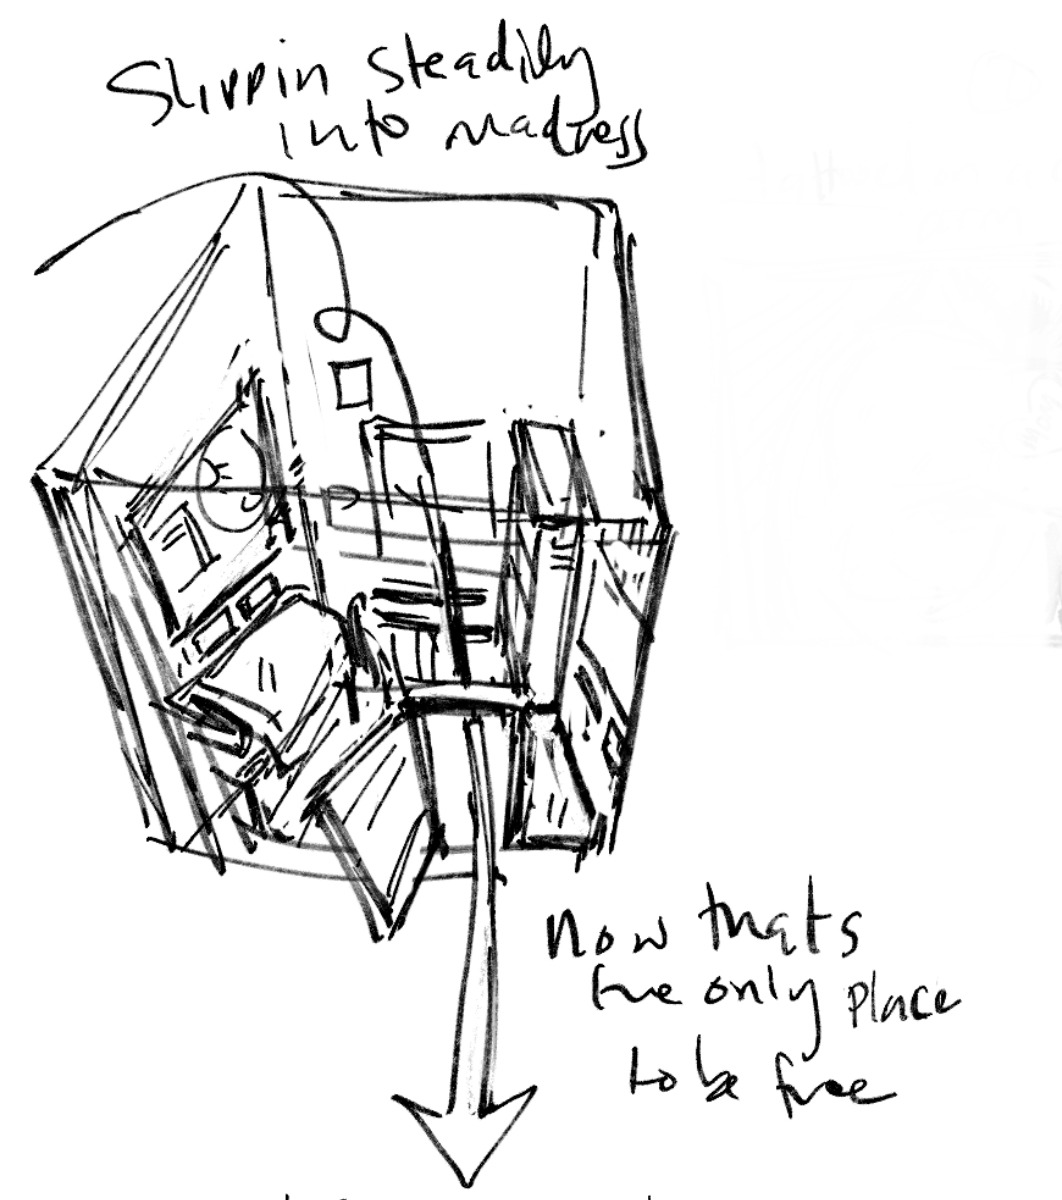 Slippin steadily
into madness
Now thats
the only place
to be free